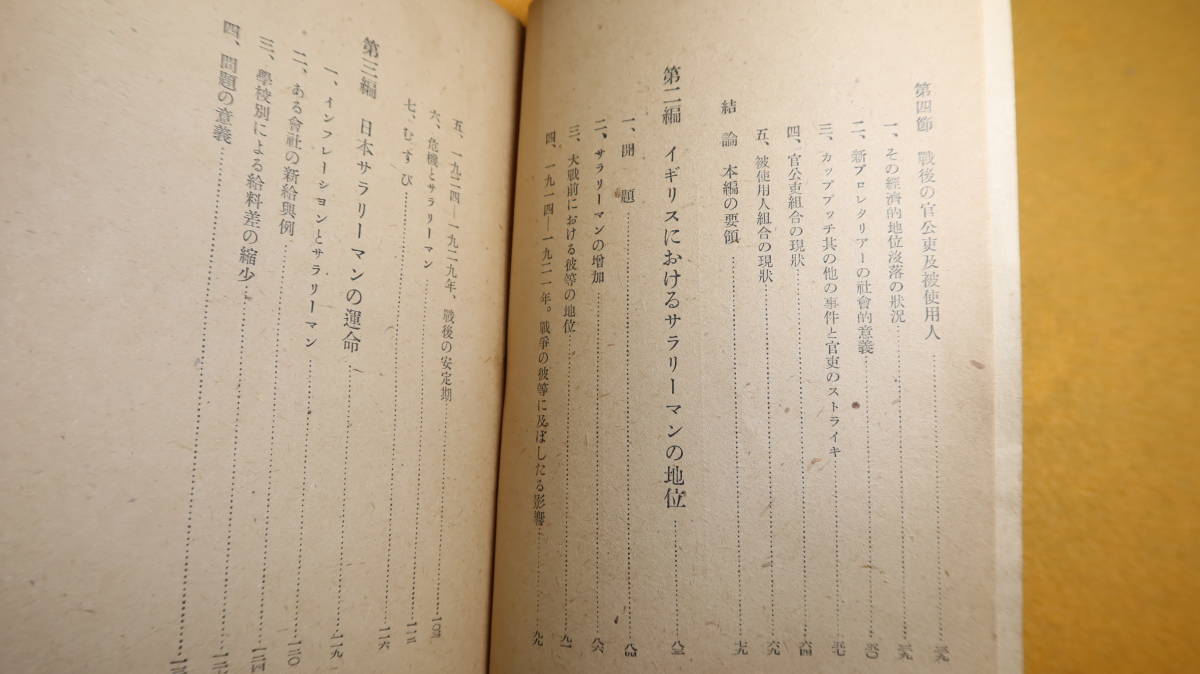 第四節　戰後の官公吏及被使用人……三九
一、その經濟的地位沒落の狀況……三九
二、新プロレタリアーの社會的意義……五〇
三、カッププッチ其の他の事件と官吏のストライキ……五七
四、官公吏組合の現狀……六四
五、被使用人組合の現狀……六九
結　論　本編の要領……七九
第二編　イギリスにおけるサラリーマンの地位……八三
一、開　題……八四
二、サラリーマンの增加……八六
三、大戰前における彼等の地位……九一
四、一九一四―一九二一年。戰爭の彼等に及ぼしたる影響……九九
五、一九二四―一九二九年、戰後の安定期……一〇三
六、危機とサラリーマン……一一三
七、むすび……一一六
第三編　日本サラリーマンの運命……一一九
一、インフレーションとサラリーマン
二、ある會社の新給與例……一二〇
三、學校別による給料差の縮少……一二四
四、問題の意義